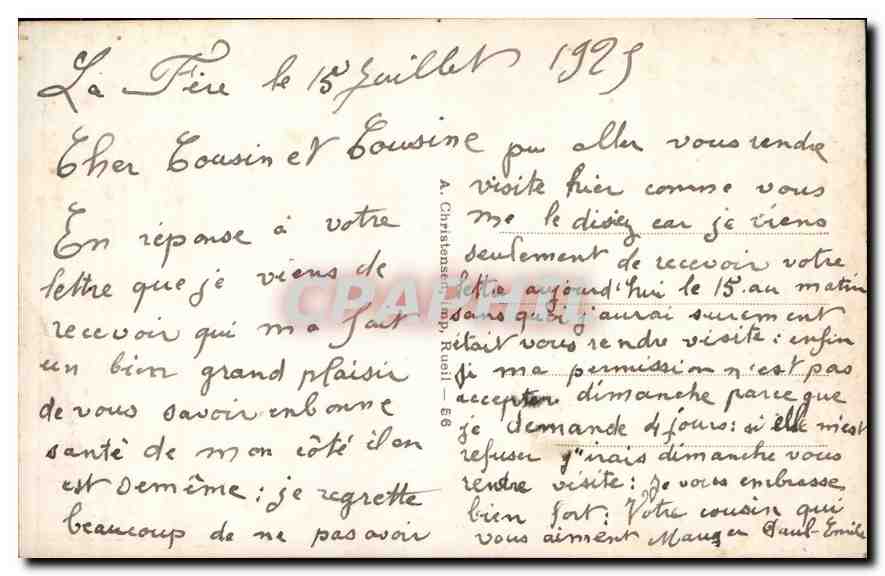 La Fère le 15 Juillet 1925
Cher Cousin et Cousine
En réponse à votre
lettre que je viens de
recevoir qui ma fait
un bien grand plaisir
de vous savoir enbonne
santé de mon côté ilen
est demême : je regrette
beaucoup de ne pas avoir
pu aller vous rendre
visite hier comme vous
me le disiez car je viens
seulement de recevoir votre
lettre aujourd'hui le 15 au matin
sans quoi j'aurai surement
était vous rendre visite : enfin
si ma permission n'est pas
accepter dimanche parce que
je demande 4 jours : si elle m'est
refuser j'irais dimanche vous
rendre visite : je vous embrasse
bien fort : Votre cousin qui
vous aiment Mauger Paul-Emile
A. Christensen, imp, Rueil — 56
CPARHII